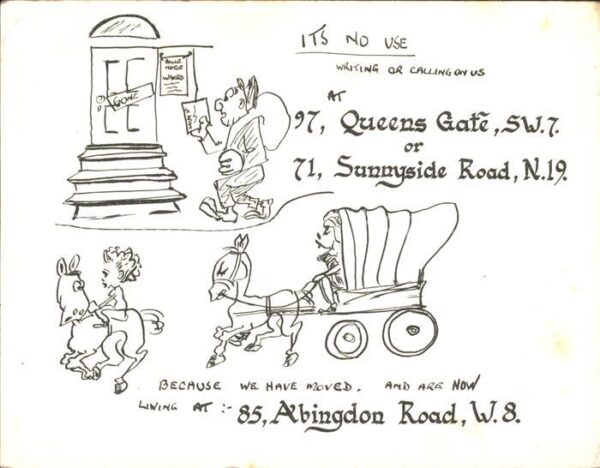 IT'S NO USE
WRITING OR CALLING ON US
AT
97, Queens Gate, S.W.7.
or
71, Sunnyside Road, N.19.
NOTICE
WANTED
GONE
BECAUSE WE HAVE MOVED. AND ARE NOW
LIVING AT :- 85, Abingdon Road, W.8.